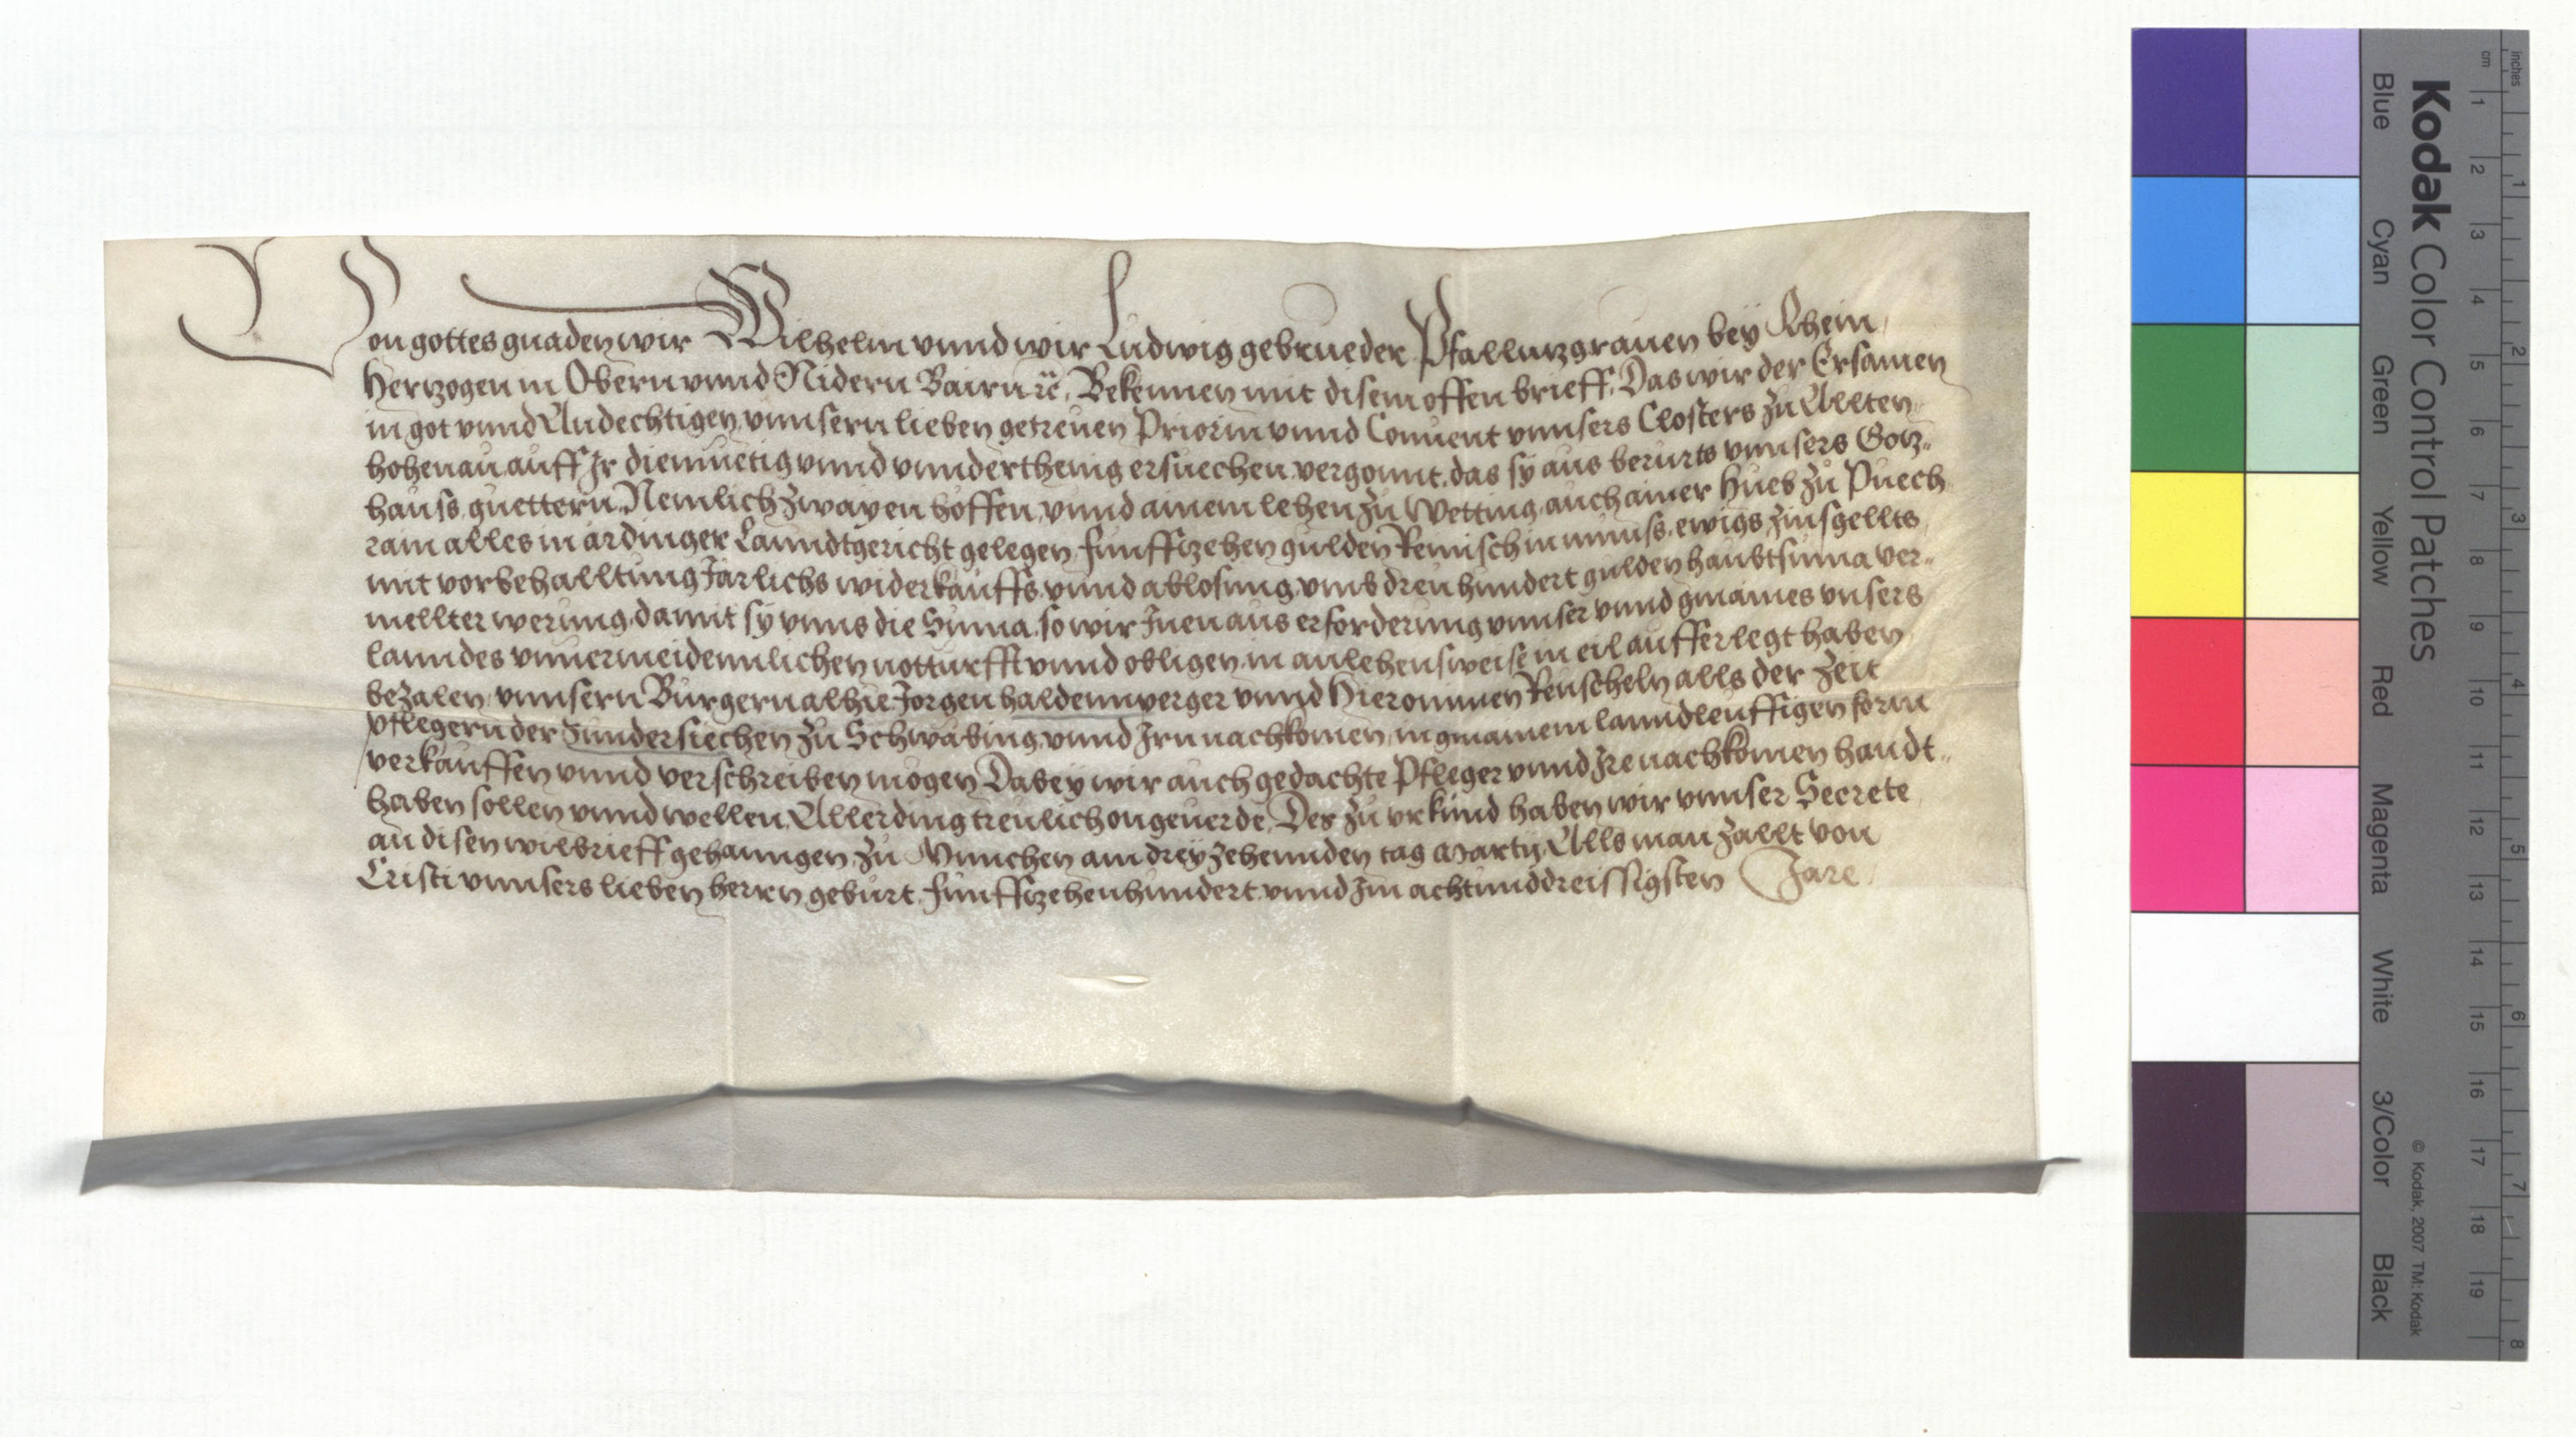 Von gottes gnaden wir Wilhelm vnnd wir Ludwig gebrueder Pfalluntzgrauen bey Rhein,
Hertzogen in Obern vnnd Nidern Bairn ꝛc̃, Bekennen mit disem offen brieff, Das wir der Ersamen
in got vnnd Andechtigen vnnsern lieben getreuen Priorin vnnd Conuent vnnsers Closters zu Allten„
hohenau, auff Jr diemuetig vnnd vnnderthenig ersuechen, vergonnt, das sy aus berurts vnnsers Gotz„
hauss guettern, Nemlich zwayen hoffen, vnnd ainem lehen zu Wetting, auch ainer Hueb zu Puech
ram alles in ärdinger Lanndtgericht gelegen, funfftzehen gulden Reinisch in muniss, ewigs zinsgellts
mit vorbehalltung Järlichs widerkauffs, vnnd ablosung, vmb dreuhundert gulden haubtsuma ver„
mellter werung, damit sy vnns die Suma, so wir Jnen aus erforderung vnnser vnnd gmaines vnsers
lanndes vnuermeidennlichen notturfft vnnd obligen, in anlehensweise in eil aufferlegt haben
bezalen, vnnsern Burgern alhie Jorgen haldennperger vnnd Hieronimen Renscheln alls der zeit
pflegern der Sundersiechen zu Schwäbing, vnnd Jrn nachkomen, in gmainem lanndleuffigen form
verkauffen vnnd verschreiben mogen, Dabey wir auch gedachte Pfleger vnnd Jre nachkomen handt„
haben sollen vnnd wellen, Allerding treulich ongeuerde, Des zu vrkund haben wir vnnser Secrete
an disen wilbrieff gehanngen, zu Munchen am dreyzehennden tag Marty, Alls man zallt von
Cristi vnnsers lieben herrn geburt, funfftzehenhundert vnnd Jm achtunddreissigsten Jare
Kodak Color Control Patches
Blue Cyan Green Yellow Red Magenta White 3/Color Black
© Kodak, 2007 TM: Kodak
inches 1 2 3 4 5 6 7 8
cm 1 2 3 4 5 6 7 8 9 10 11 12 13 14 15 16 17 18 19